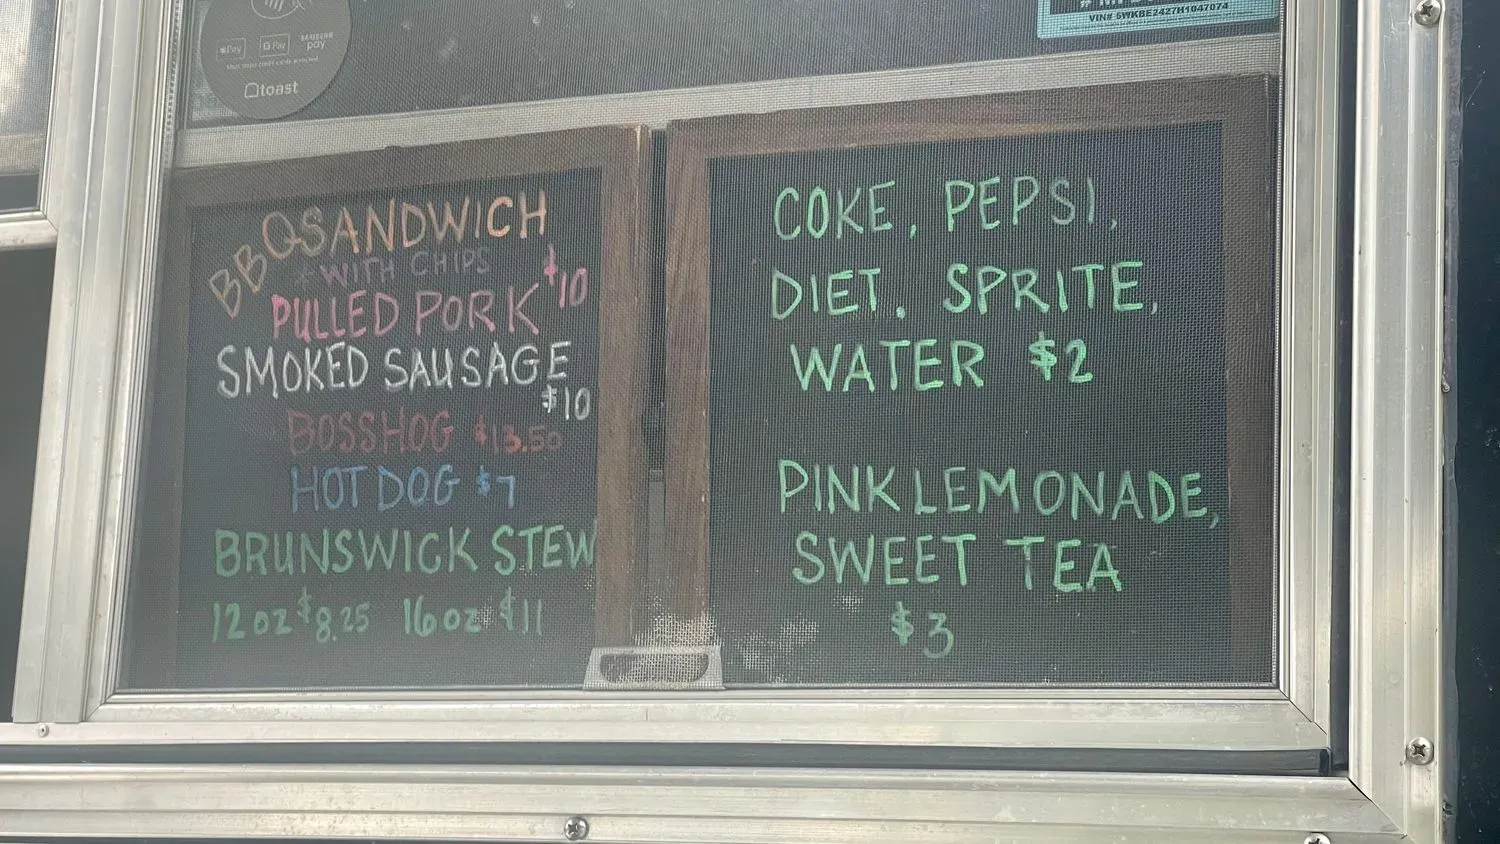 Pay
G Pay
SAMSUNG pay
toast
VIN# 5WKBE2427H1047074
BBQ SANDWICH
+ WITH CHIPS
PULLED PORK $10
SMOKED SAUSAGE
$10
BOSSHOG $13.50
HOT DOG $7
BRUNSWICK STEW
12 oz $8.25 16 oz $11
COKE, PEPSI,
DIET, SPRITE,
WATER $2
PINK LEMONADE,
SWEET TEA
$3